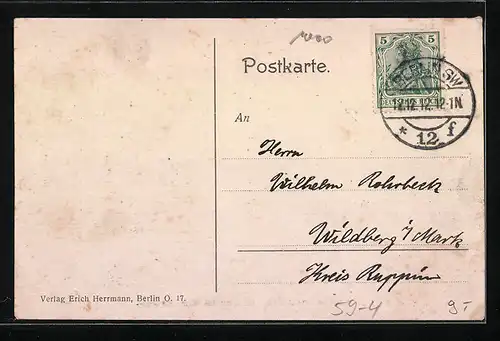 Postkarte.
5 5
BERLIN SW
12.12.12.12-1N
* 12 f
An
Herrn
Wilhelm Rohrbeck
Wildberg i/Mark
Kreis Ruppin
Verlag Erich Herrmann, Berlin O. 17.
59-4
9-